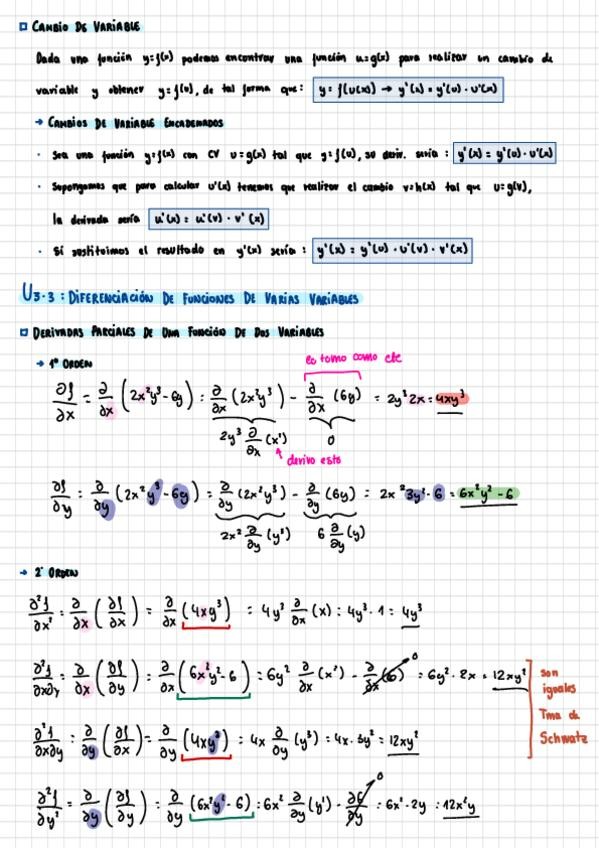 CAMBIO DE VARIABLE
Dada una función y=f(x) podemos encontrar una función u=g(x) para realizar un cambio de
variable y obtener y=f(u), de tal forma que: y = f(u(x)) → y'(x) = y'(u) · u'(x)
→ CAMBIOS DE VARIABLE ENCADENADOS
· Sea una función y=f(x) con CV u=g(x) tal que y=f(u), su deriv. sería: y'(x) = y'(u) · u'(x)
· Supongamos que para calcular u'(x) tenemos que realizar el cambio v=h(x) tal que u=g(v),
la derivada sería u'(x) = u'(v) · v'(x)
· Si sustituimos el resultado en y'(x) sería: y'(x) = y'(u) · u'(v) · v'(x)
U3.3: DIFERENCIACIÓN DE FUNCIONES DE VARIAS VARIABLES
DERIVADAS PARCIALES DE UNA FUNCIÓN DE DOS VARIABLES
→ 1º ORDEN
lo tomo como cte
∂f/∂x = ∂/∂x (2x²y³-6y) = ∂/∂x (2x²y³) - ∂/∂x (6y) = 2y³2x = 4xy³
2y³ ∂/∂x (x²) 0
derivo esto
∂f/∂y = ∂/∂y (2x²y³-6y) = ∂/∂y (2x²y³) - ∂/∂y (6y) = 2x²3y²-6 = 6x²y²-6
2x² ∂/∂y (y³) 6 ∂/∂y (y)
→ 2º ORDEN
∂²f/∂x² = ∂/∂x (∂f/∂x) = ∂/∂x (4xy³) = 4y³ ∂/∂x (x) = 4y³·1 = 4y³
∂²f/∂x∂y = ∂/∂x (∂f/∂y) = ∂/∂x (6x²y²-6) = 6y² ∂/∂x (x²) - ∂/∂x (6) 0 = 6y²·2x = 12xy²
∂²f/∂x∂y = ∂/∂y (∂f/∂x) = ∂/∂y (4xy³) = 4x ∂/∂y (y³) = 4x·3y² = 12xy²
son
iguales
Tma de
Schwatz
∂²f/∂y² = ∂/∂y (∂f/∂y) = ∂/∂y (6x²y²-6) = 6x² ∂/∂y (y²) - ∂6/∂y 0 = 6x²·2y = 12x²y